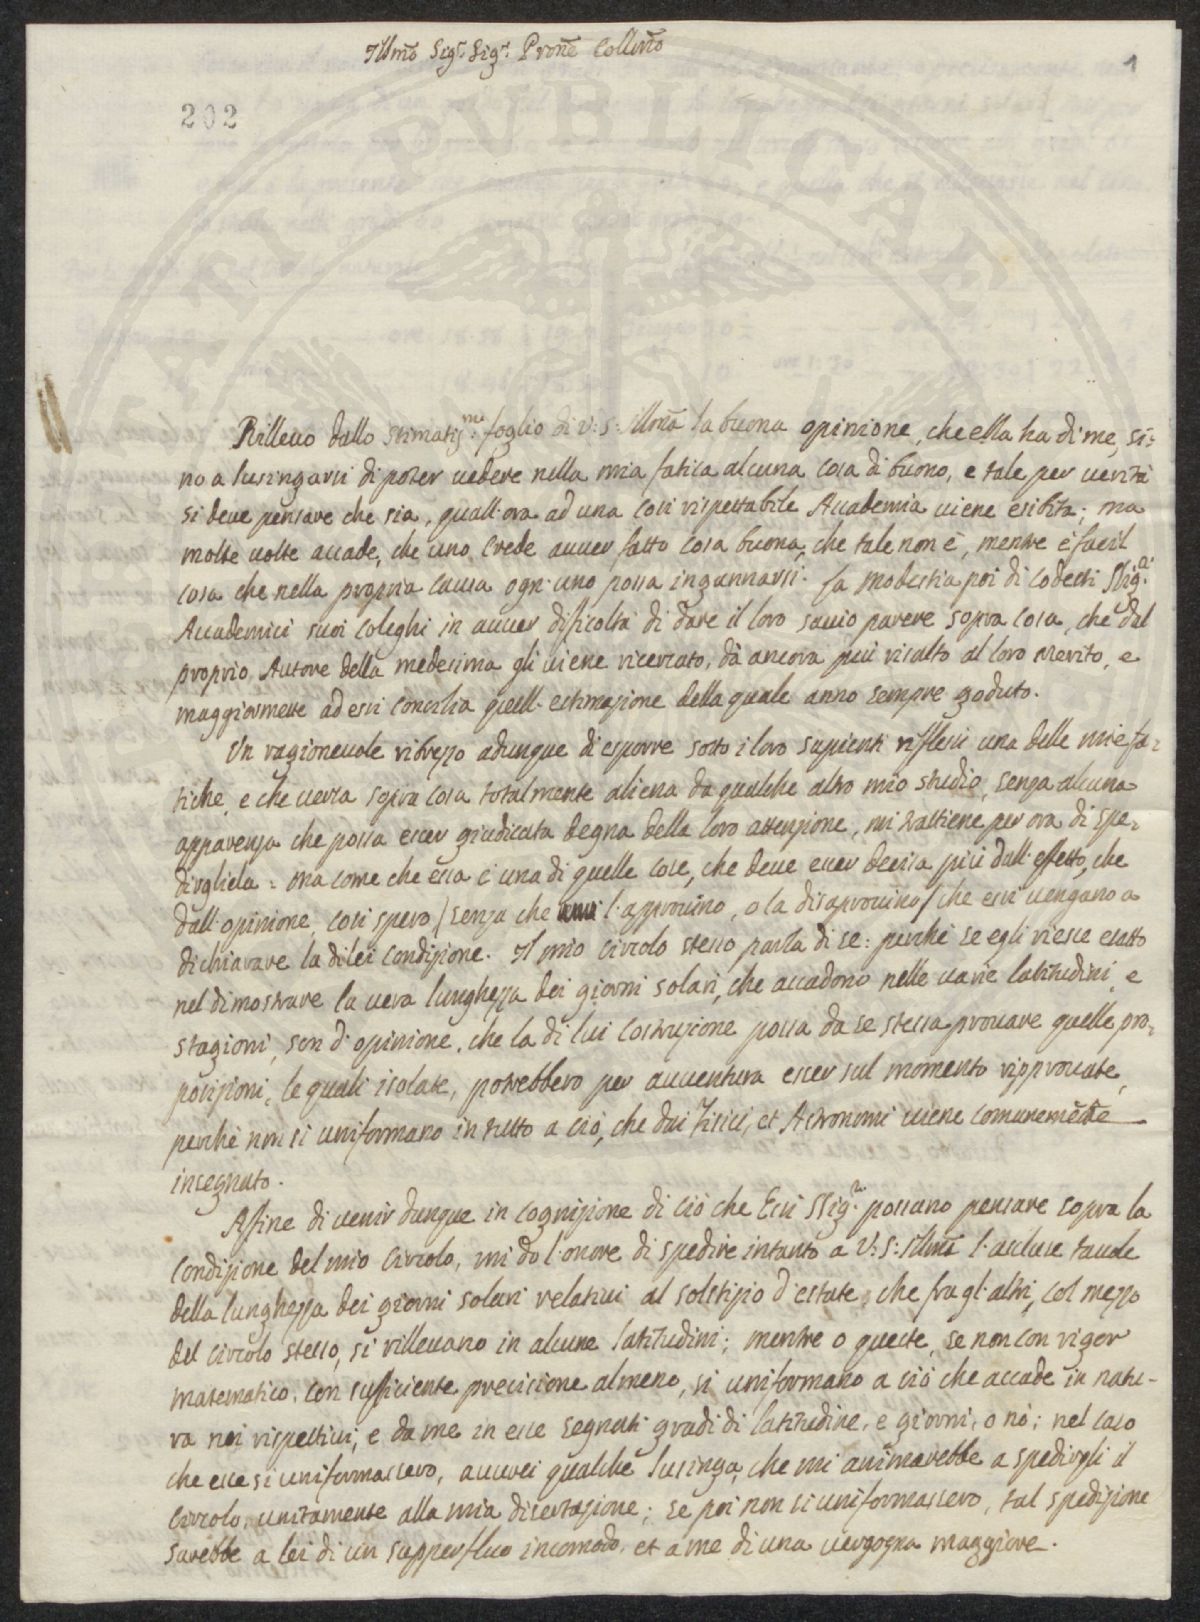 Illmo Sigr Sigr Prone Collmo
1
202
Rillevo dallo stimatisme foglio di V: S: Illma la buona opinione, che ella ha di me, si:
no a lusingarsi di poter vedere nella mia fatica alcuna cosa di buono, e tale per verità
si deve pensare che sia, quall'ora ad una così rispettabile Accademia viene esibita; ma
molte volte accade, che uno crede avver fatto cosa buona, che tale non è, mentre è facil
cosa che nella propria causa ogn'uno possa ingannarsi. La modestia poi di codesti SSigri
Accademici suoi coleghi in avver dificoltà di dare il loro savio parere sopra cosa, che dal
proprio Autore della medesima gli viene ricercato, dà ancora più risalto al loro merito, e
maggiormente ad essi concilia quell'estimazione della quale anno sempre goduto.
Un ragionevole ribrezzo adunque di esporre sotto i loro sapienti riflessi una delle mie fa:
tiche, e che versa sopra cosa totalmente aliena da qualche altro mio studio, senza alcuna
apparenza che possa esser giudicata degna della loro attenzione, mi trattiene per ora di spe:
dirgliela: ma come che essa è una di quelle cose, che deve esser decisa più dall'effetto, che
dall'opinione, così spero (senza che l'approvino, o la disaprovino) che essi vengano a
dichiarare la di lei condizione. Il mio circolo stesso parla di se: perchè se egli riesce esatto
nel dimostrare la vera lunghezza dei giorni solari, che accadono nelle varie latitudini, e
stagioni, son d'opinione, che la di lui costruzione possa da se stessa provare quelle pro:
posizioni, le quali isolate, potrebbero per avventura esser sul momento ripprovate,
perchè non si uniformano in tutto a ciò, che dai Fisici, et Astronomi viene comunemente
insegnato.
Affine di venir dunque in cognizione di ciò che Essi SSigri possano pensare sopra la
condizione del mio circolo, mi do l'onore di spedire intanto a V: S: Illma l'accluse tavole
della lunghezza dei giorni solari relativi al solstizio d'estate, che fra gl'altri, col mezzo
del circolo stesso, si rillevano in alcune latitudini; mentre o queste, se non con rigor
matematico, con sufficiente precisione almeno, si uniformano a ciò che accade in natu-
ra nei rispettivi, e da me in esse segnati gradi di latitudine, e giorni, o nò; nel caso
che esse si uniformassero, avverei qualche lusinga, che mi animarebbe a spedirgli il
circolo, unitamente alla mia disertazione; se poi non si uniformassero, tal spedizione
sarebbe a lei di un supperfluo incomodo, et a me di una vergogna maggiore.